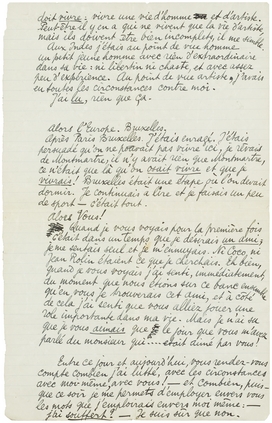 doit vivre: vivre une vie d'homme et d'artiste.
Peut-être il y en a qui ne veulent que la vie d'artiste,
mais ils doivent être bien incomplets, il me semble.
Aux Indes j'étais au point de vue homme
un petit jeune homme avec rien d'extraordinaire
dans sa vie: ni libertin ni chaste, et avec assez
peu d'expérience. Au point de vue artiste j'avais
eu toutes les circonstances contre moi.
J'ai lu, rien que ça.
Alors l'Europe. Bruxelles.
Après Paris Bruxelles. J'étais enragé. J'étais
persuadé qu'on ne pouvait pas vivre ici, je rêvais
de Montmartre, il n'y avait rien que Montmartre,
ce n'était que là qu'on osait vivre et que je
vivrais! Bruxelles était une étape où l'on devait
dormir. Je continuais à lire et je faisais un peu
de sport – c'était tout.
Alors Vous!
Quand je vous voyais pour la première fois
c'était dans un temps que je désirais un ami;
je me doutais que et je m'ennuyais. Ni Coco, ni
Jean Rolin étaient ce que je cherchais. Eh bien,
quand je vous voyais j'ai senti, immédiatement,
du moment que nous étions sur ce banc ensemble
qu'en vous je trouverais cet ami, et à côté
de cela j'ai senti que vous alliez jouer une
rôle importante dans ma vie. Mais je n'ai su
que je vous aimais que ce jour que vous m'avez
parlé du monsieur qui était aimé par vous!
Entre ce jour et aujourd'hui, vous rendez-vous
compte combien j'ai lutté, avec les circonstances
avec moi-même, avec vous! – et combien, puis-
que ce soir je me permets d'employer envers vous
les mots que j'emploierais envers moi-même: –
j'ai souffert? – Je suis sur que non.